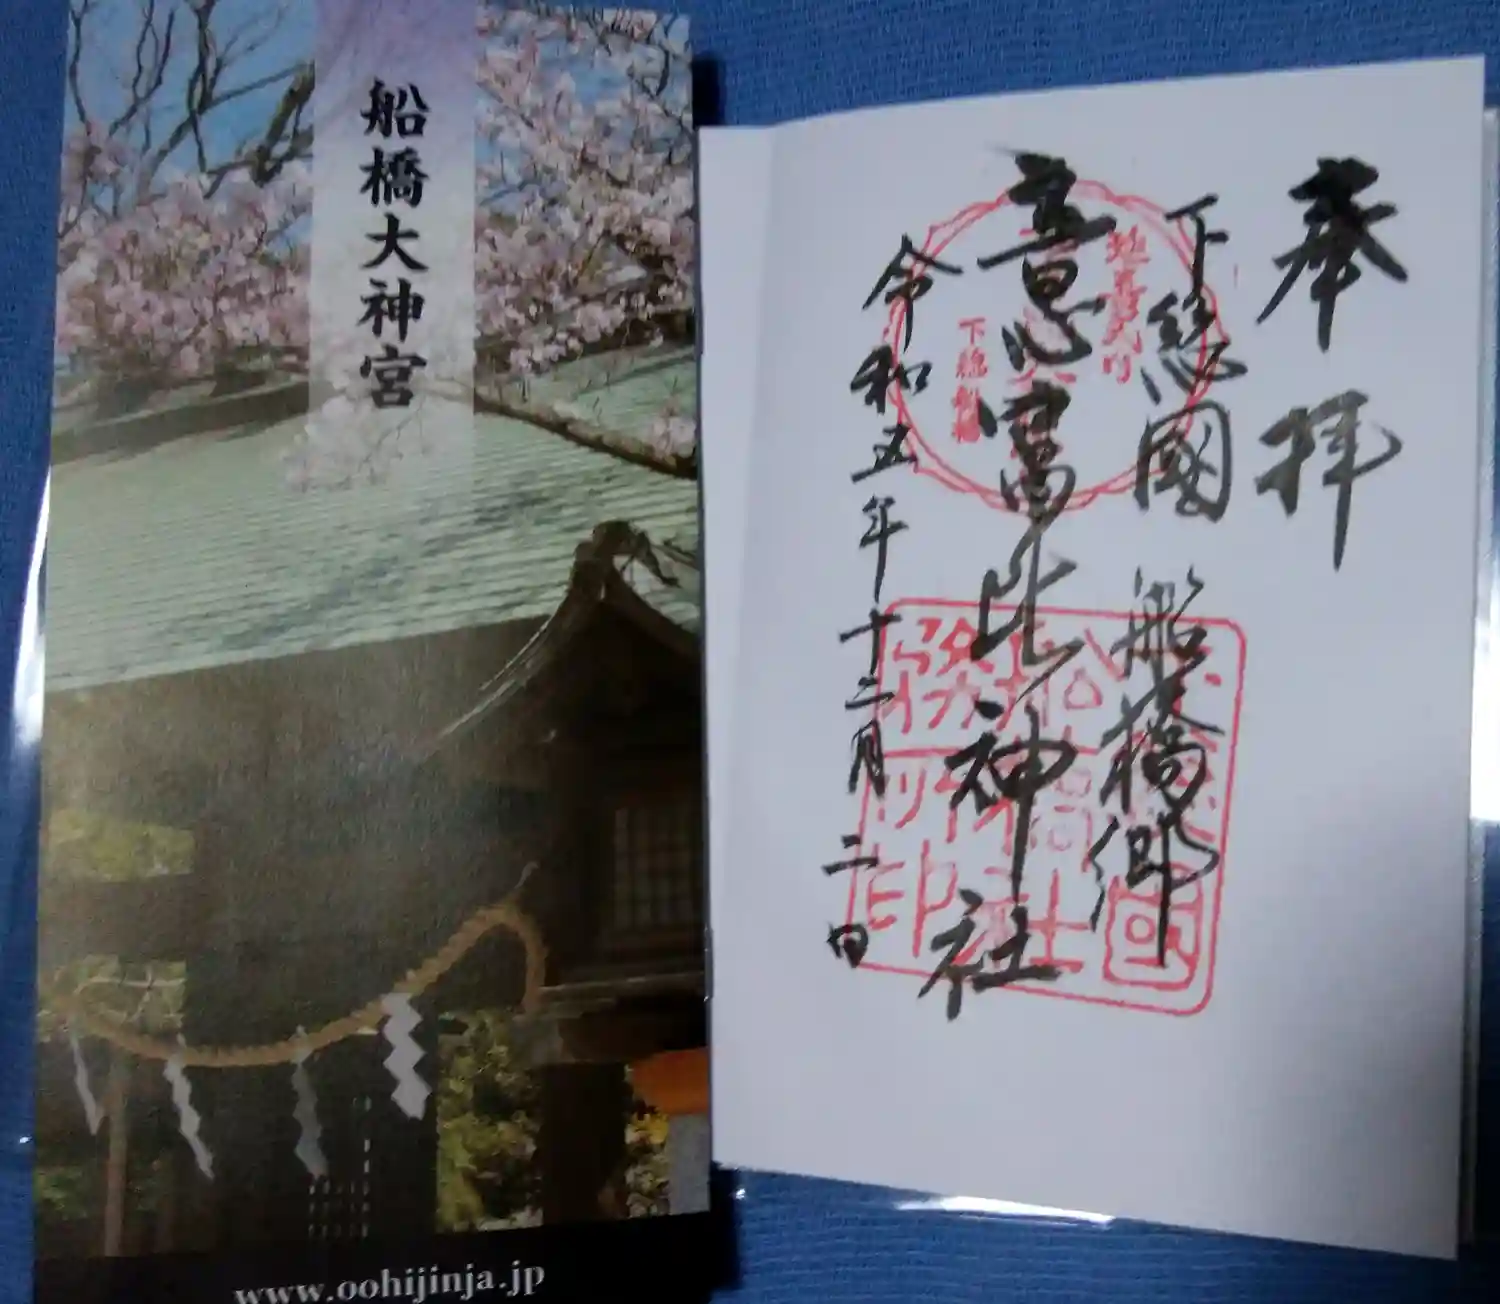 船橋大神宮
www.oohijinja.jp
奉拝
下総國 船橋郷
意富比神社
令和五年十二月二日
下総船橋